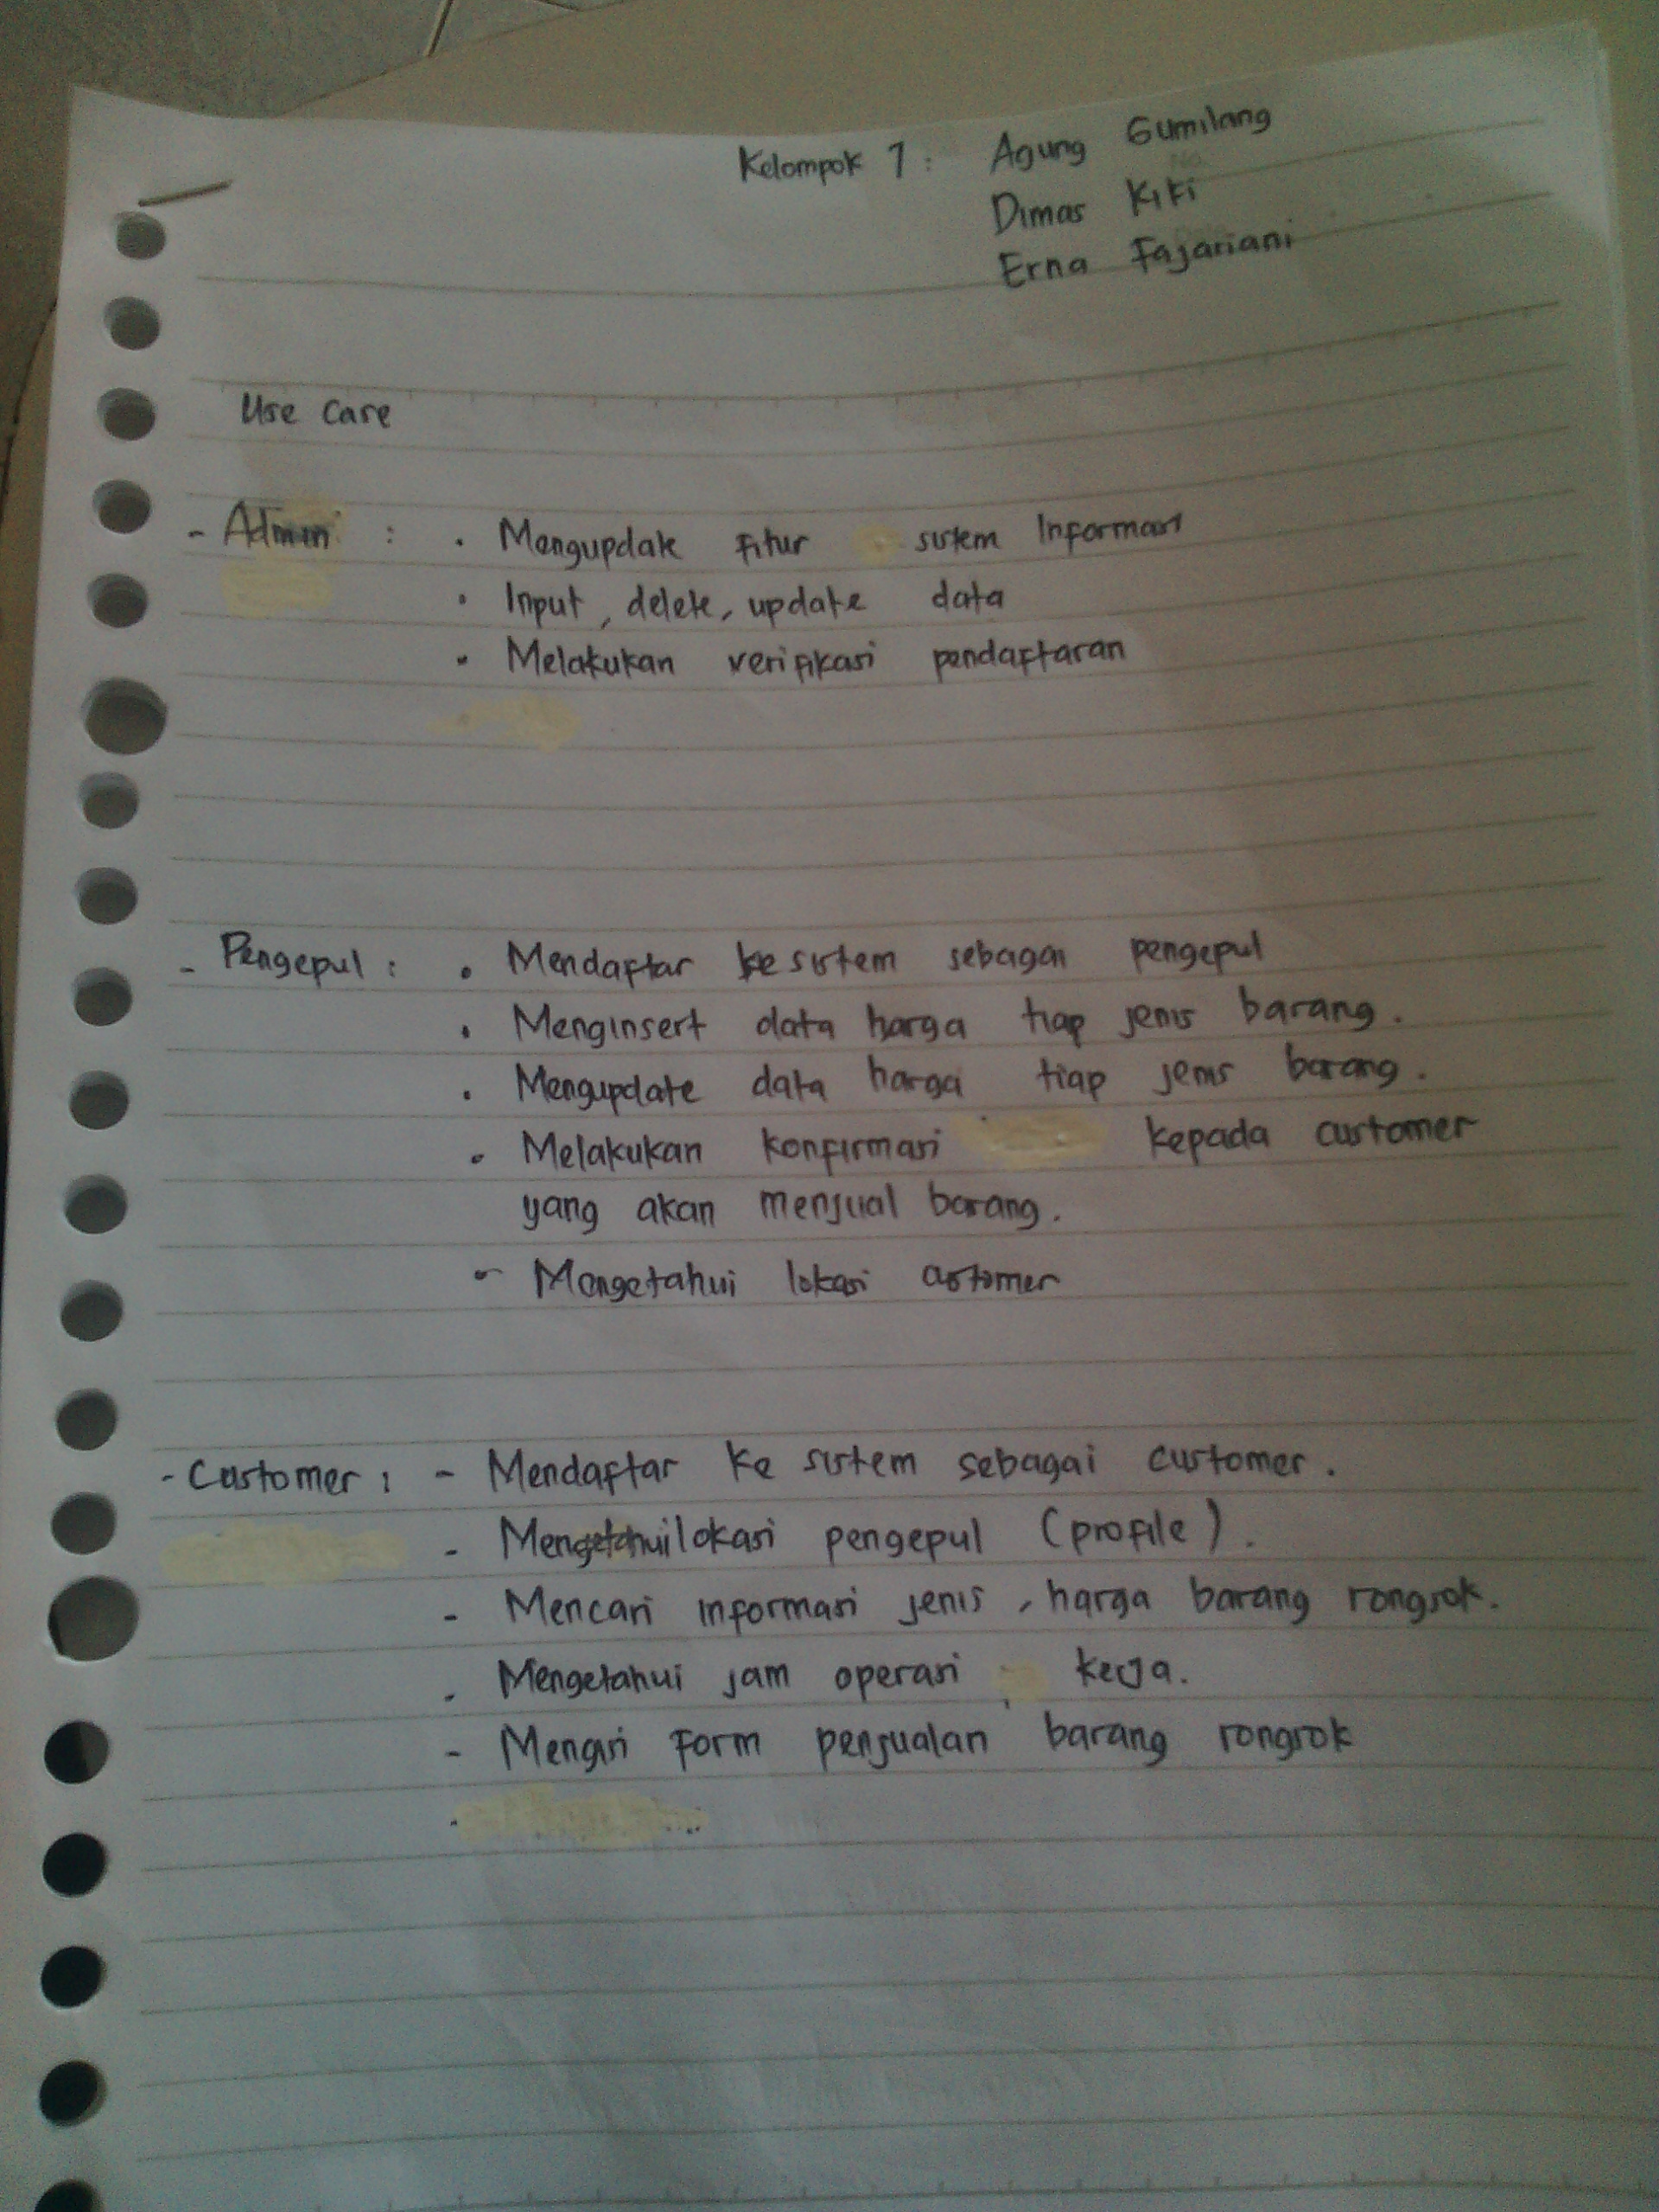 Kelompok 1 : Agung Gumilang
Dimas Kiki
Erna Fajariani
Use Case
- Admin : • Mengupdate fitur sistem Informasi
• Input, delete, update data
• Melakukan verifikasi pendaftaran
- Pengepul : • Mendaftar ke sistem sebagai pengepul
• Menginsert data harga tiap jenis barang.
• Mengupdate data harga tiap jenis barang.
• Melakukan konfirmasi kepada customer
yang akan menjual barang.
- Mengetahui lokasi customer
- Customer : - Mendaftar ke sistem sebagai customer.
- Mengetahui lokasi pengepul (profile).
- Mencari informasi jenis, harga barang rongsok.
- Mengetahui jam operasi kerja.
- Mengisi Form penjualan barang rongsok